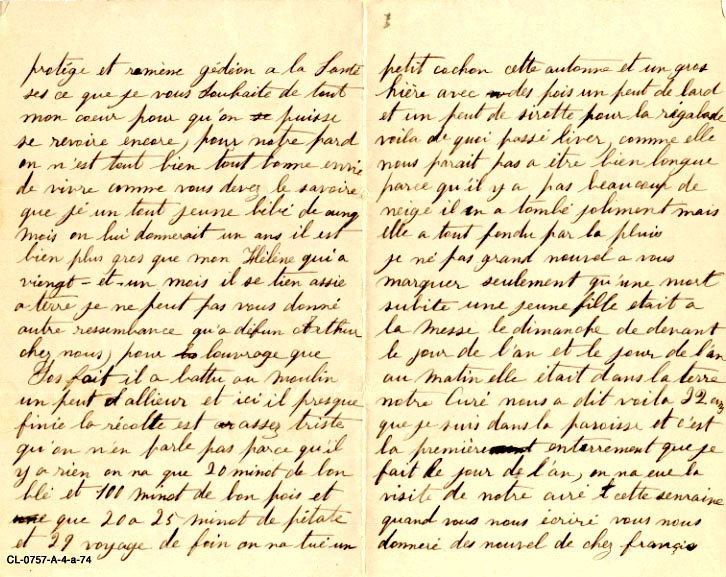 protége et ramène gédéon a la Santé
ses ce que je vous souhaite de tout
mon coeur pour qu'on se puisse
se revoire encore, pour notre pard
on n'est tout bien tout bonne envie
de vivre comme vous devez le savoire
que jé un tout jeune bébé de onng
mois on lui donnerait un ans il est
bien plus gros que mon Hélène qui a
viengt-et-un mois il se tien assie
a terre je ne peut pas vous donné
autre ressembance qu'a défun Arthur
chez nous, pour louvrage que
Jos fait il a battu au moulin
un peut d'allieur et ici il presque
finie la récolte est assez triste
qu'on n'en parle pas parce qu'il
y a rien on na que 20 minot de bon
blé et 100 minot de bon pois et
que 20 a 25 minot de pétate
et 29 voyage de foin on na tué un
3
petit cochon cette autonne et un gros
hière avec des pois un peut de lard
et un peut de sirotte pour la régalade
voila de quoi passé liver, comme elle
nous parait pas a être bien longue
parce qu'il y a pas beaucoup de
neige il en a tombé joliment mais
elle a tout fondu par la pluie
je né pas grand nouvel a vous
marquer seulement qu'une mort
subite une jeune fille était a
la messe le dimanche de devant
le jour de l'an et le jour de l'an
au matin elle était dans la terre
notre Curé nous a dit voila 32 ans
que je suis dans la paroisse et c'est
la première enterrement que je
fait le jour de l'an, on na eue la
visite de notre curé cette semaine
quand vous nous écriré vous nous
donneré des nouvel de chez françis
CL-0757-A-4-a-74